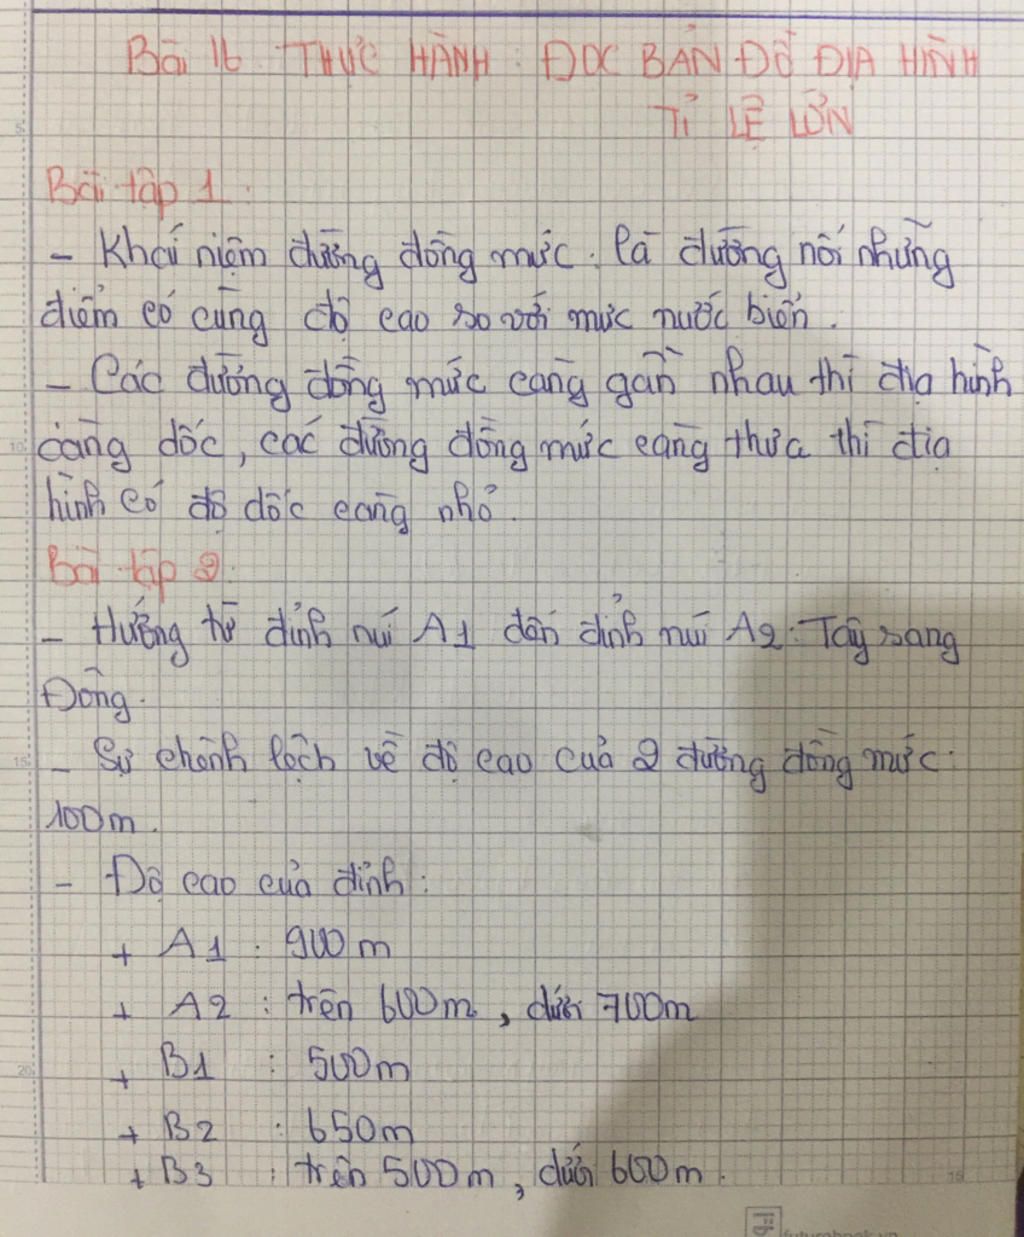 Bài 16 THỰC HÀNH : ĐỌC BẢN ĐỒ ĐỊA HÌNH
TỈ LỆ LỚN
Bài tập 1 :
- Khái niệm đường đồng mức : là đường nối những
điểm có cùng độ cao so với mực nước biển.
- Các đường đồng mức càng gần nhau thì địa hình
càng dốc, các đường đồng mức càng thưa thì địa
hình có độ dốc càng nhỏ.
Bài tập 2:
- Hướng từ đỉnh núi A1 đến đỉnh núi A2: Tây sang
Đông.
- Sự chênh lệch về độ cao của 2 đường đồng mức:
100m.
- Độ cao của đỉnh:
+ A1 : 900m
+ A2 : trên 600m, dưới 700m
+ B1 : 500m
+ B2 : 650m
+ B3 : trên 500m, dưới 600m.